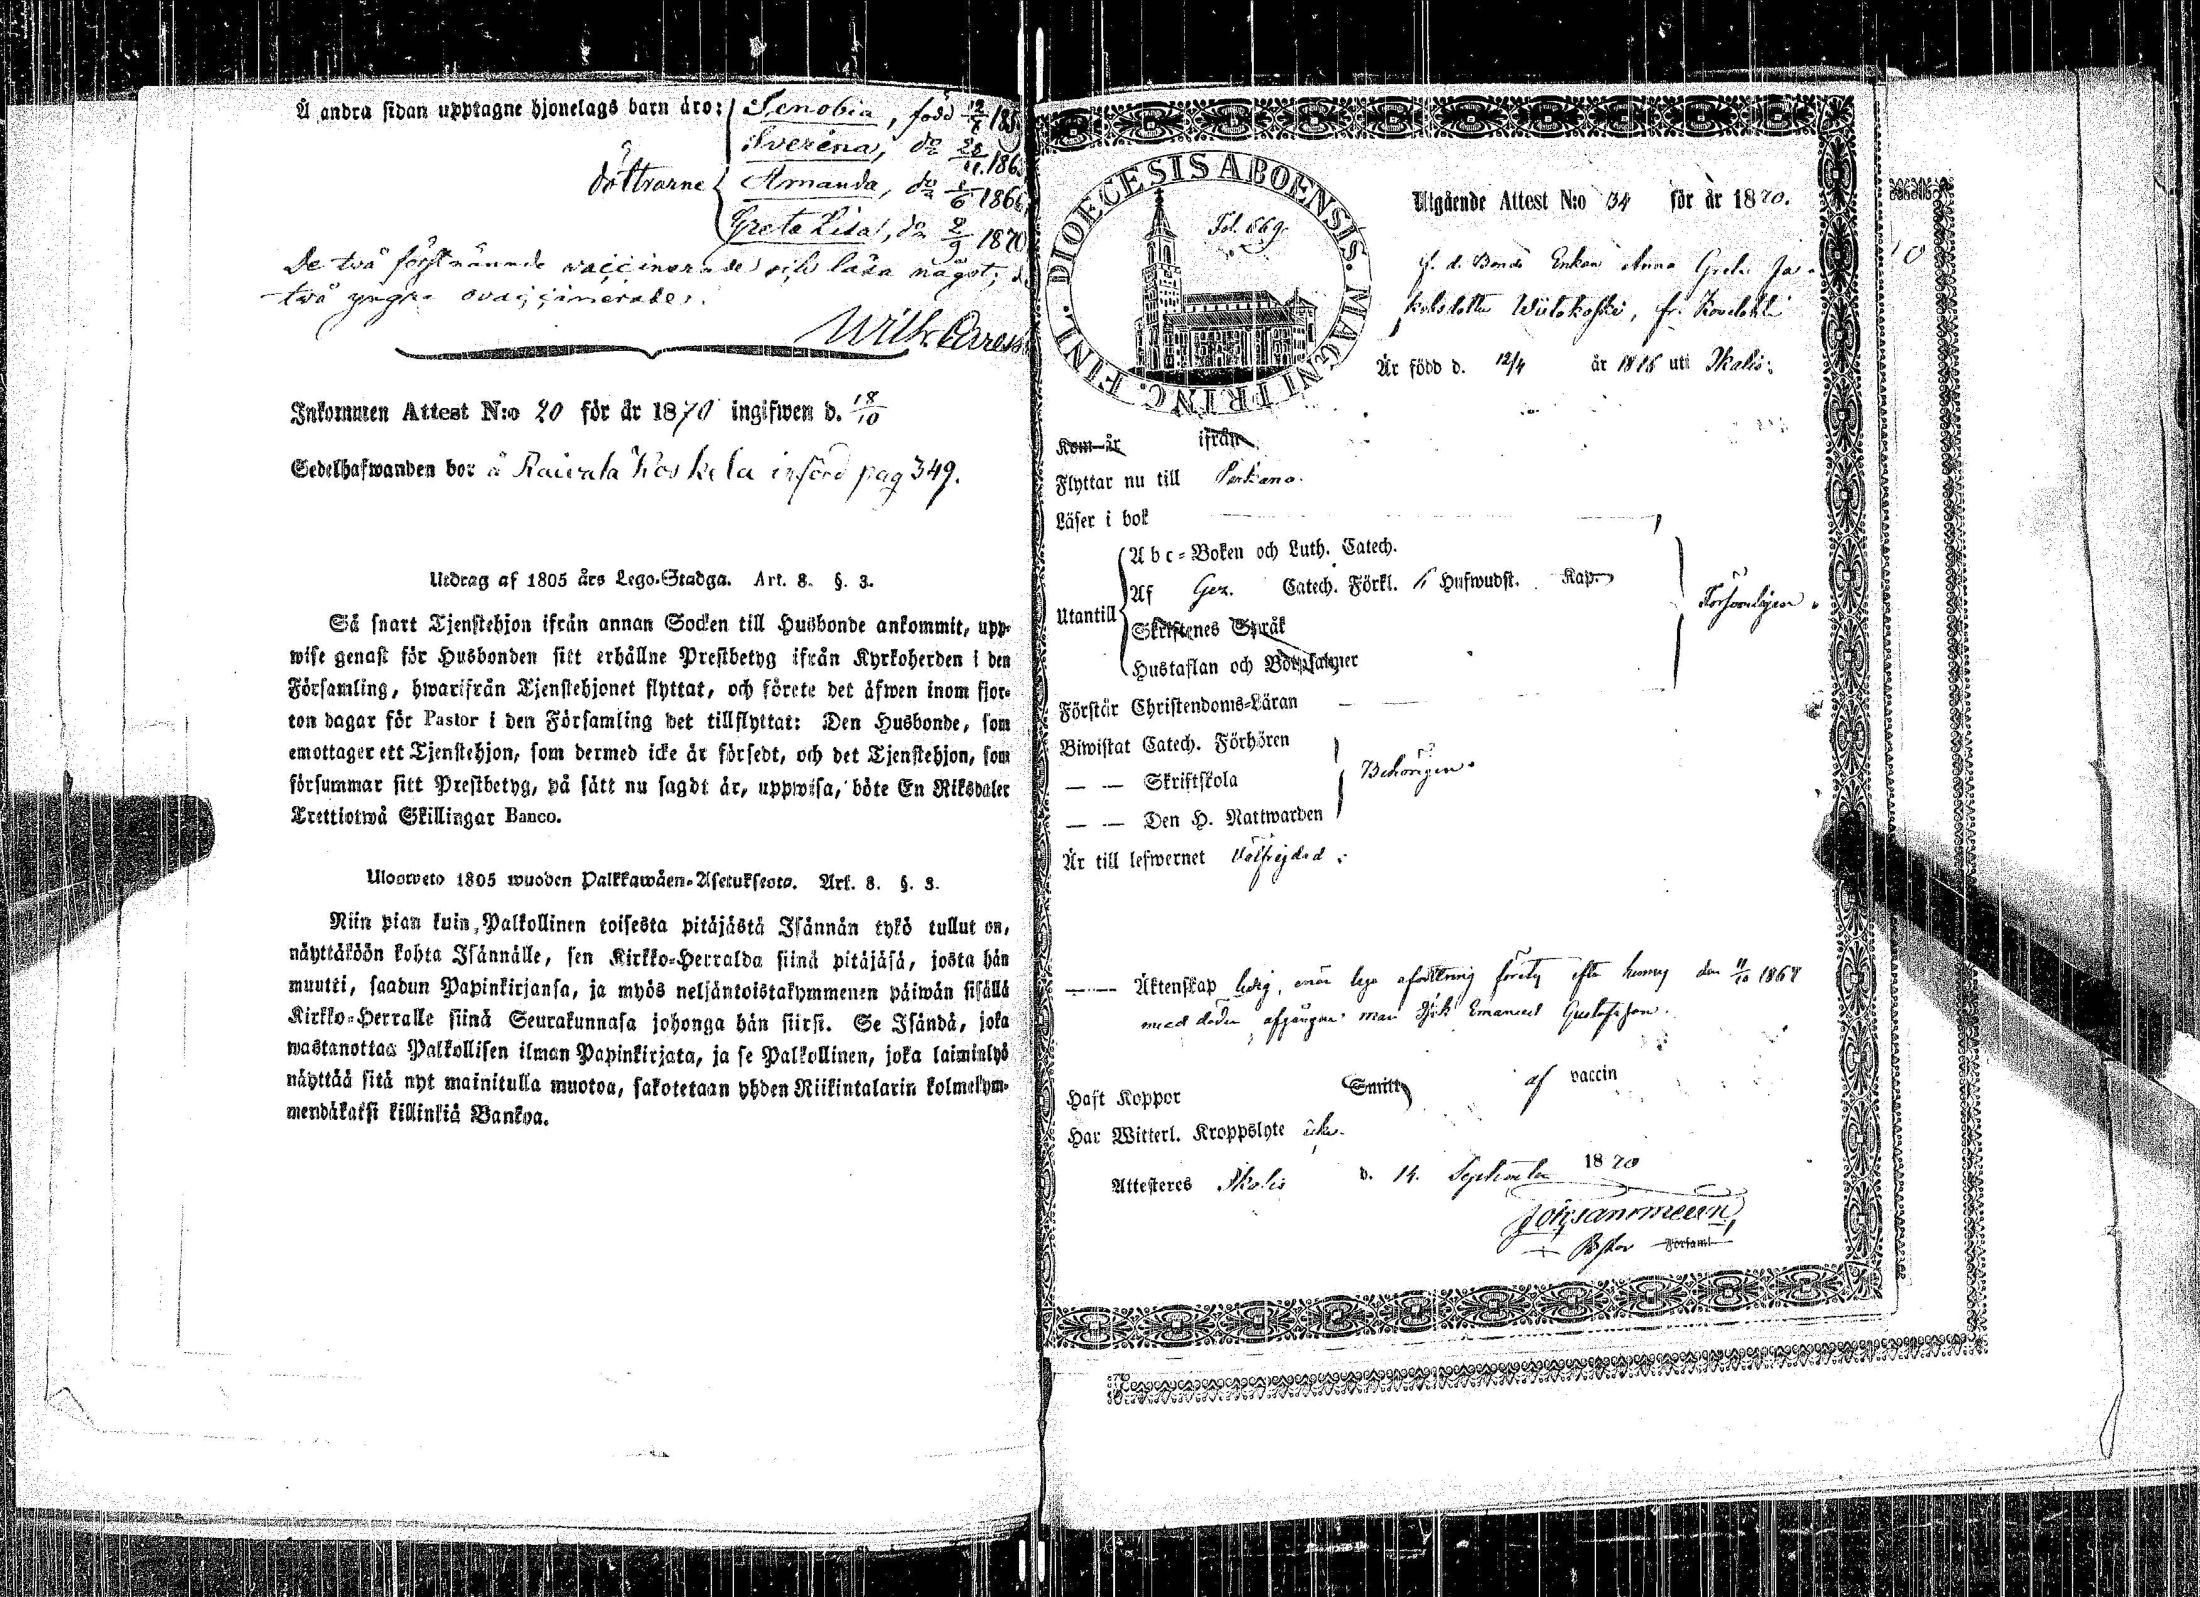 Å andra sidan upptagne hjonelags barn äro:
Senobia, född 12/7 185
Sverena, do 28/11 186
döttrarne
Amanda, do 1/6 1866
Greta Lisa, do 2/9 1870
De två förstnämnde vaccinerade och läsa något, d
två yngre ovaccinerade.
Wilh.
Inkommen Attest N:o 20 för år 1870 ingifwen d. 18/10
Sedelhafwanden bor å Raivala Koskela införd pag 349.
Utdrag af 1805 års Lego-Stadga. Art. 8. §. 3.
Så snart Tjenstehjon ifrån annan Socken till Husbonde ankommit, upp-
wise genast för Husbonden sitt erhållne Prestbetyg ifrån Kyrkoherden i den
Församling, hwarifrån Tjenstehjonet flyttat, och förete det äfwen inom fjor-
ton dagar för Pastor i den Församling det tillflyttat: Den Husbonde, som
emottager ett Tjenstehjon, som dermed icke är försedt, och det Tjenstehjon, som
försummar sitt Prestbetyg, på sätt nu sagdt är, uppwisa, böte En Riksdaler
Trettiotwå Skillingar Banco.
Ulosweto 1805 wuoden Palkkawäen-Asetuksesta. Art. 8. §. 3.
Niin pian kuin Palkollinen toisesta pitäjästä Isännän tykö tullut on,
näyttäköön kohta Isännälle, sen Kirkko-Herralda siinä pitäjäsä, josta hän
muutti, saadun Papinkirjansa, ja myös neljäntoistakymmenen päiwän sisällä
Kirkko-Herralle siinä Seurakunnasa johonga hän siirsi. Se Isändä, joka
wastanottaa Palkollisen ilman Papinkirjata, ja se Palkollinen, joka laiminlyö
näyttää sitä nyt mainitulla muotoa, sakotetaan yhden Riikintalarin kolmekym-
mendäkaksi killinkiä Bankoa.
DIOECESIS ABOENSIS. MAGNI PRINC. FINL.
Fol. 669.
Utgående Attest N:o 34 för år 1870.
f. d. Bonde Enkan Anna Greta Ja-
kobsdotter
Är född d. 12/4 år 1816 uti Ikalis.
Kom år ifrån
Flyttar nu till Parkano.
Läser i bok
Abc-Boken och Luth. Catech.
Utantill
Af Catech. Förkl. Hufwudst. Kap.
Skriftenes Språk
Hustaflan och Botpsalmer
Försvarligen.
Förstår Christendoms-Läran
Biwistat Catech. Förhören
— — Skriftskola
Behörigen.
— — Den H. Nattwarden
Är till lefwernet Välfrejdad.
— — Äktenskap ledig, efter den 11/10 1868
med döden afgångne man Emanuel Gustafsson.
Haft Koppor Smitt af vaccin
Har Witterl. Kroppslyte icke.
Attesteres Ikalis d. 14. September 1870
Pastor Församl.